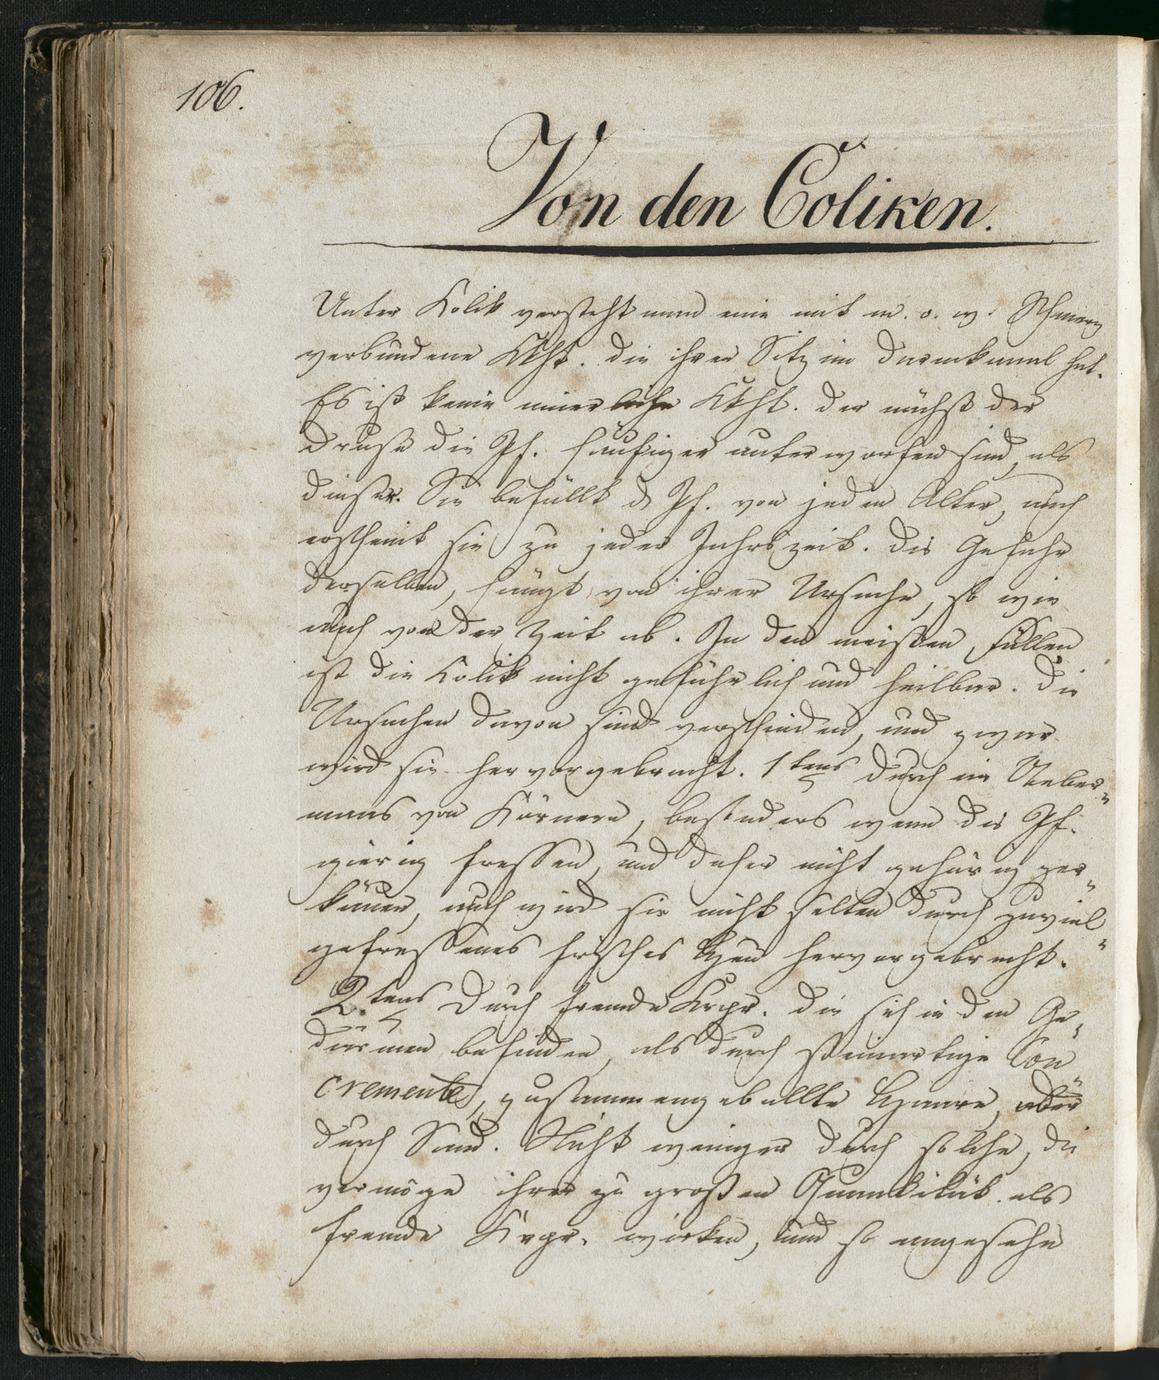 106.
Von den Coliken.
Unter Kolik versteht man eine mit m. o. w. Schmerz
verbundene Kkht. die ihren Sitz im Darmkanal hat.
Es ist keine innerliche Kkht. der nächst der
Druse die Pf. häufiger unterworfen sind, als
dieser. Sie befällt d. Pf. von jedem Alter, auch
erscheint sie zu jeder Jahrszeit. Die Gefahr
derselben, hängt von ihrer Ursache, so wie
auch von der Zeit ab. In den meisten Fällen
ist die Kolik nicht gefährlich und heilbar. Die
Ursachen davon sind verschieden, und zwar
wird sie hervorgebracht. 1tens durch ein Ueber„
mas von Körnern, besonders wenn die Pf.
gierig fressen, und daher nicht gehörig zer„
käuen, auch wird sie nicht selten durch zuviel„
gefressenes frisches Heu hervorgebracht.
2.tens Durch fremde Krpr. die sich in den Ge„
därmen befinden, als durch steinartige Con„
cremente, zusammengeballte Haare, oder
durch Sand. Nicht weniger durch solche, die
vermöge ihrer zu großen Quantität als
fremde Krpr. wirken, und so angesehn